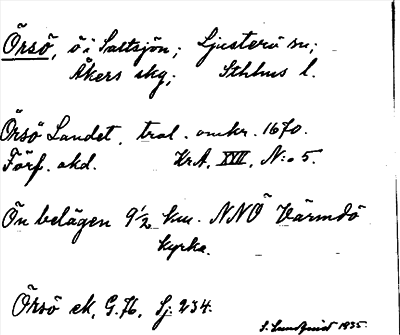 Örsö, ö i Saltsjön; Ljusterö sn;
Åkers skg; Sthlms l.
Örsö Landet, trol. omkr. 1670.
Förf. okd. KrA, XVII, N:o 5.
Ön belägen 9½ km. NNO Värmdö
kyrka.
Örsö ek, G. 76, Sj. 234.
S. Lundqvist 1935.